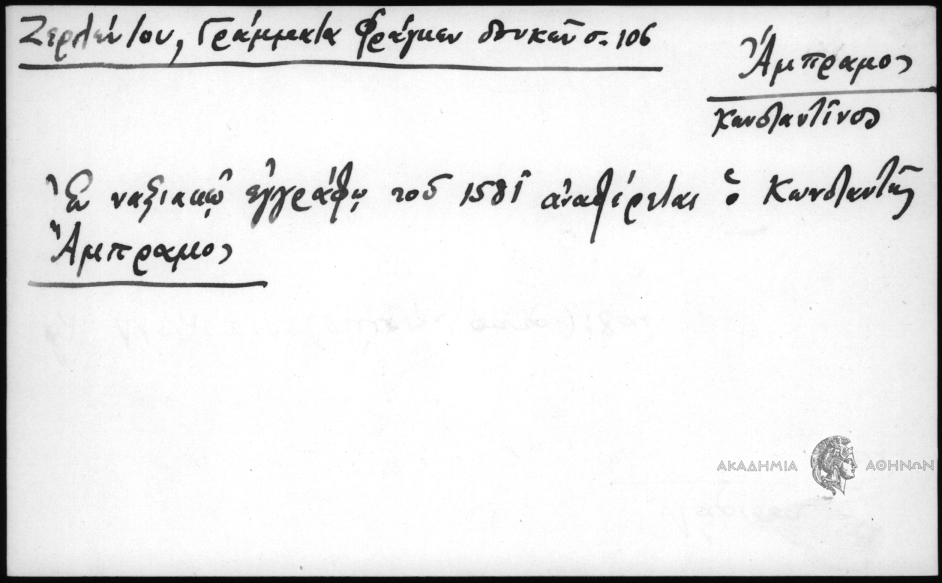 Ζερλέντου, Γράμματα Φράγκων δουκῶν σ. 106
Ἄμπραμος
Κωνσταντῖνος
Ἐν ναξιακῷ ἐγγράφῳ τοῦ 1581 ἀναφέρεται ὁ Κωνσταντῆς
Ἄμπραμος
ΑΚΑΔΗΜΙΑ ΑΘΗΝΩΝ